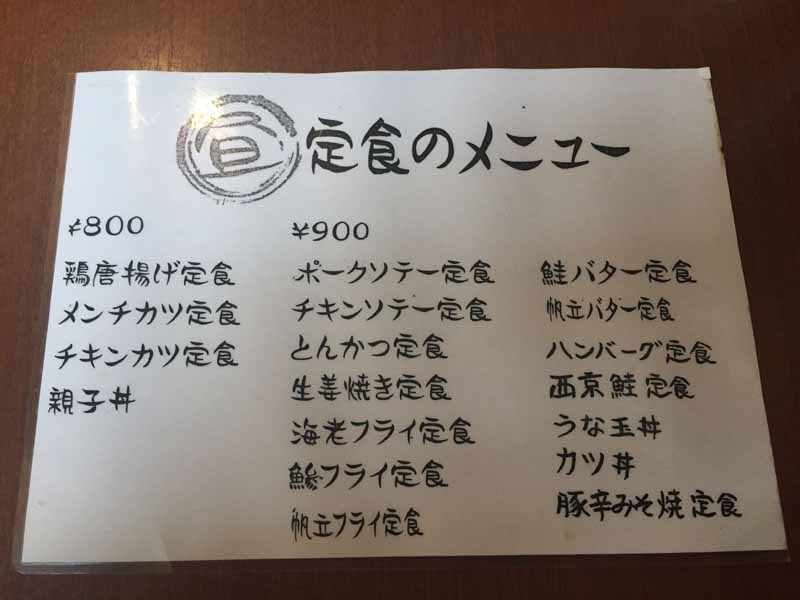 昼定食のメニュー
¥800
鶏唐揚げ定食
メンチカツ定食
チキンカツ定食
親子丼
¥900
ポークソテー定食
チキンソテー定食
とんかつ定食
生姜焼き定食
海老フライ定食
鯵フライ定食
帆立フライ定食
鮭バター定食
帆立バター定食
ハンバーグ定食
西京鮭定食
うな玉丼
カツ丼
豚辛みそ焼定食